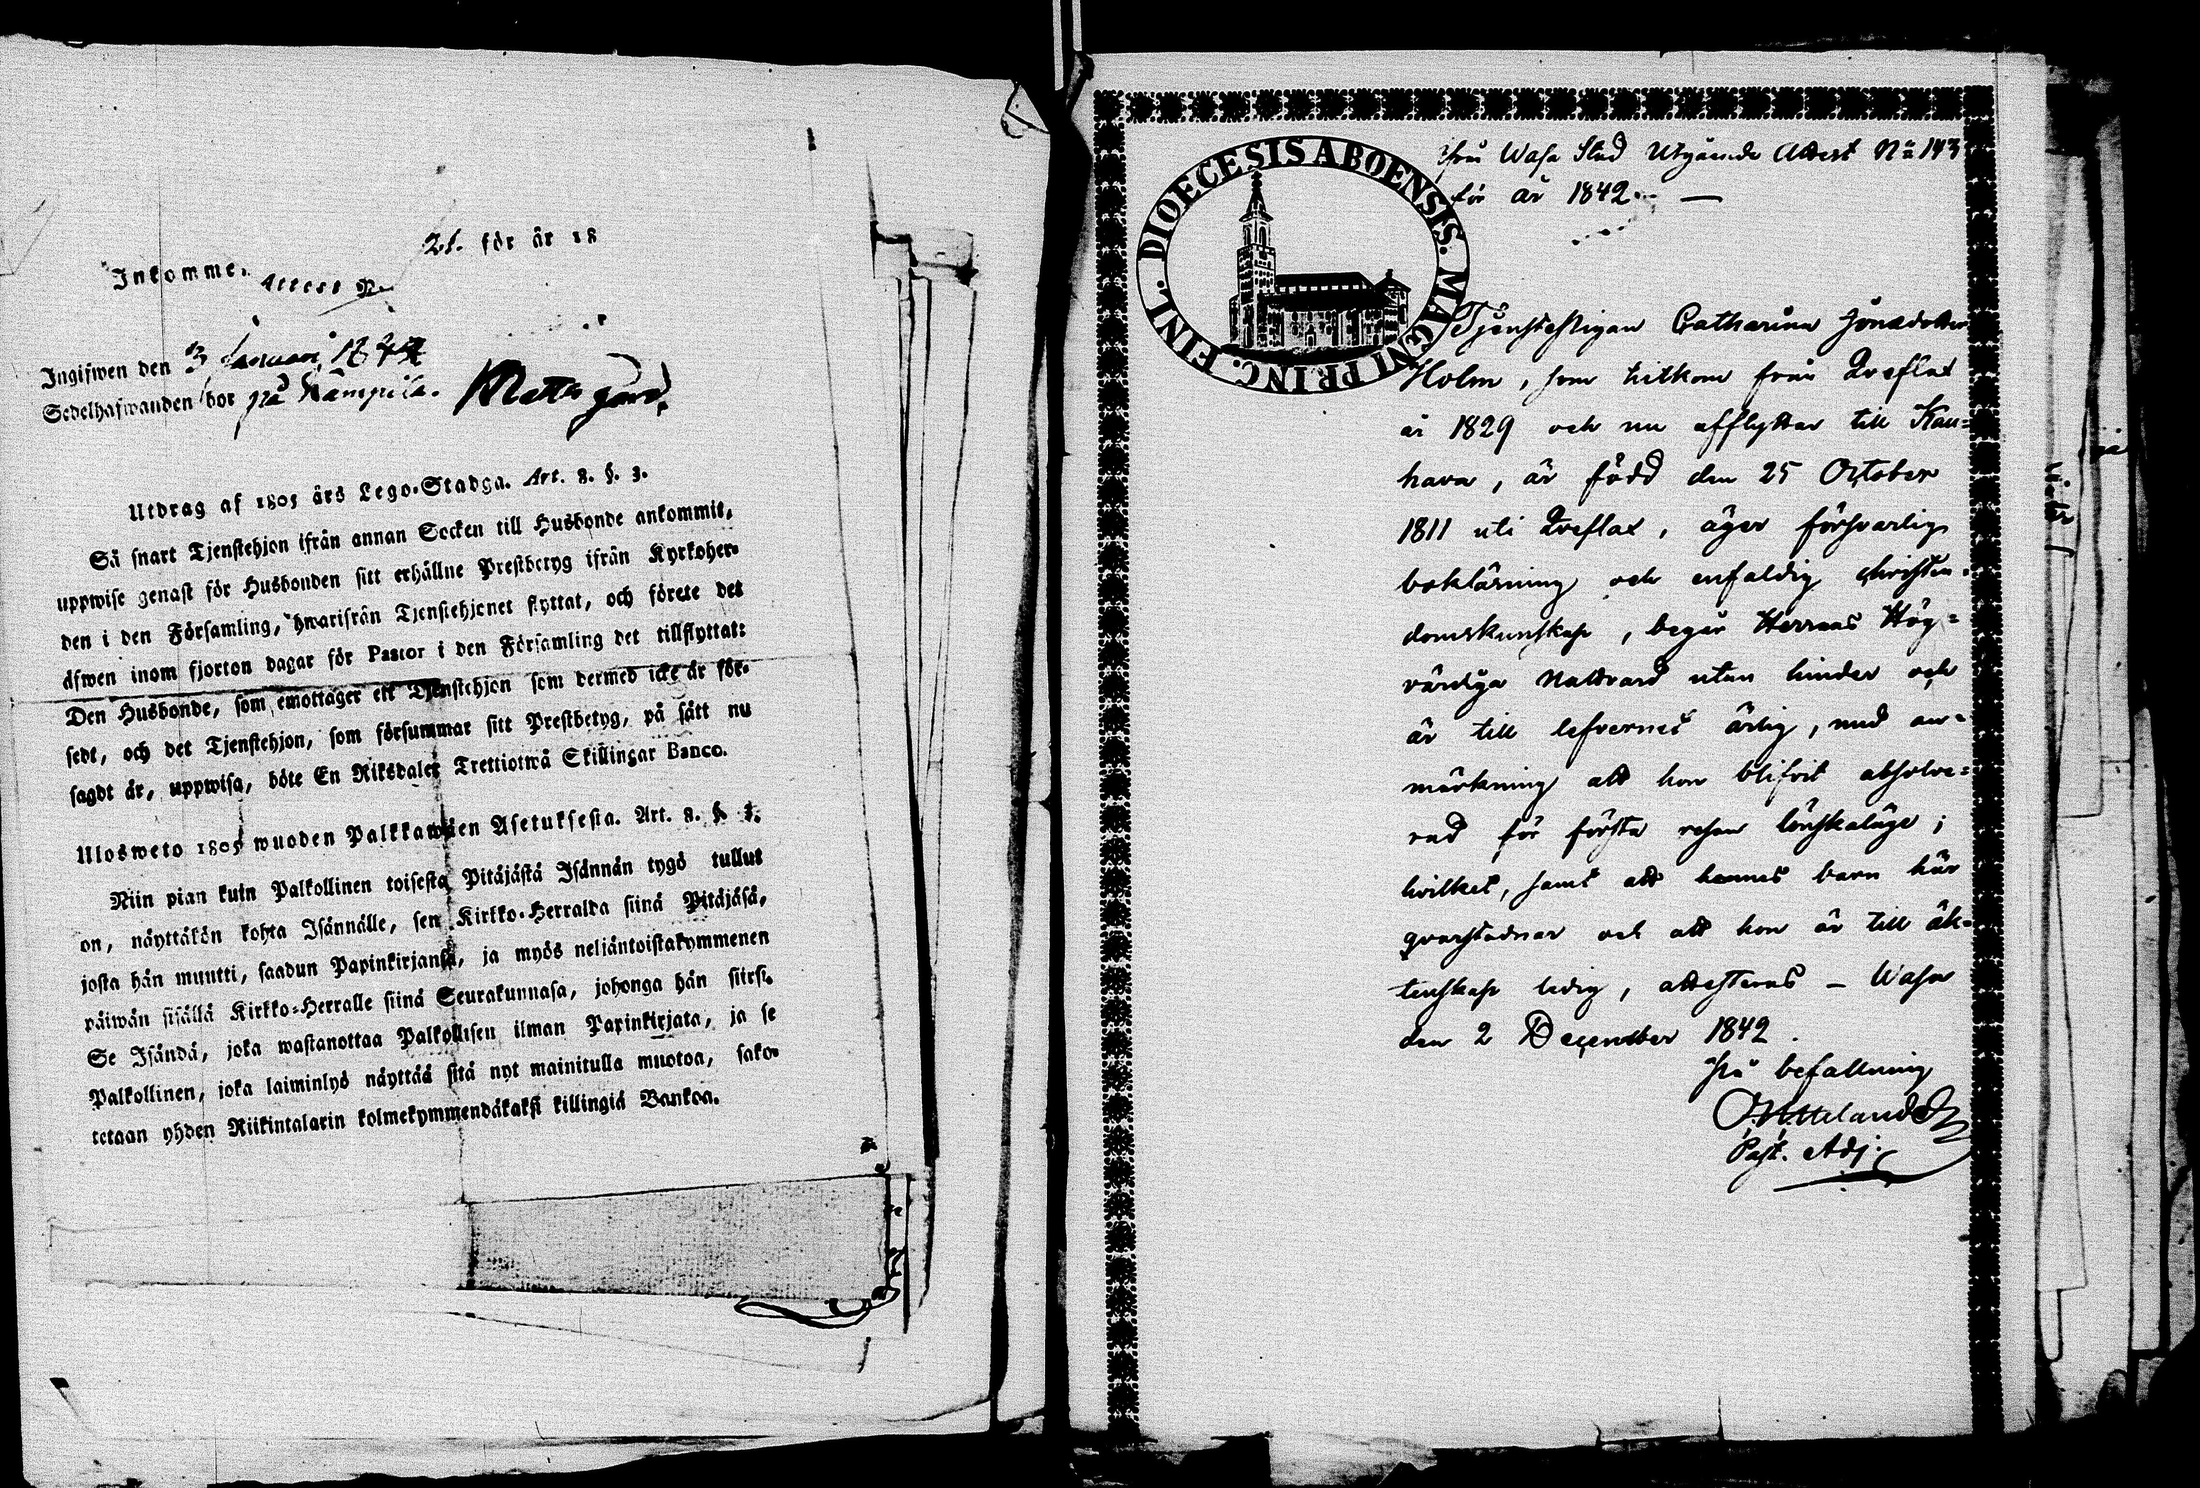 Inkomme. Attest N. 21. för år 18
Ingifwen den 3 Januari
Sedelhafwanden bor på Kämpilä. Mattsgård.
Utdrag af 1805 års Lego-Stadga. Art. 8. §. 3.
Så snart Tjenstehjon ifrån annan Socken till Husbonde ankommit,
uppwise genast för Husbonden sitt erhållne Prestbetyg ifrån Kyrkoher-
den i den Församling, hwarifrån Tjenstehjonet flyttat, och förete det
äfwen inom fjorton dagar för Pastor i den Församling det tillflyttat:
Den Husbonde, som emottager ett Tjenstehjon som dermed icke är för-
sedt, och det Tjenstehjon, som försummar sitt Prestbetyg, på sätt nu
sagdt är, uppwisa, böte En Riksdaler Trettiotwå Skillingar Banco.
Ulosweto 1805 wuoden Palkkawäen Asetuksesta. Art. 8. §. 3.
Niin pian kuin Palkollinen toisesta Pitäjästä Isännän tygö tullut
on, näyttäkön kohta Isännälle, sen Kirkko-Herralda siinä Pitäjäsä,
josta hän muutti, saadun Papinkirjansa, ja myös neljäntoistakymmenen
päiwän sisällä Kirkko-Herralle siinä Seurakunnasa, johonga hän siirsi.
Se Isändä, joka wastanottaa Palkollisen ilman Papinkirjata, ja se
Palkollinen, joka laiminlyö näyttää sitä nyt mainitulla muotoa, sako-
tetaan yhden Riikintalarin kolmekymmendäkaksi killingiä Bankoa.
DIOECESIS ABOENSIS. MAGNI PRINC. FINL.
från Wasa Stad Utgående Attest No 143
för år 1842. —
Tjenstefligan Catharina Jonsdotter
Holm, som hitkom från Qveflax
år 1829 och nu afflyttar till Kau-
hava, är född den 25 October
1811 uti Qveflax, äger försvarlig
boklärning och enfaldig christen-
domskunskap, begår Herrans Hög-
värdiga Nattvard utan hinder och
är till lefvernet ärlig, med an-
märkning att hon blifvit absolve-
rad för första resan lönskaläge;
hvilket, samt att hennes barn här
qvarstadnar och att hon är till äk-
tenskap ledig, attesteras – Wasa
den 2 December 1842.
På befallning
Past. Adj.